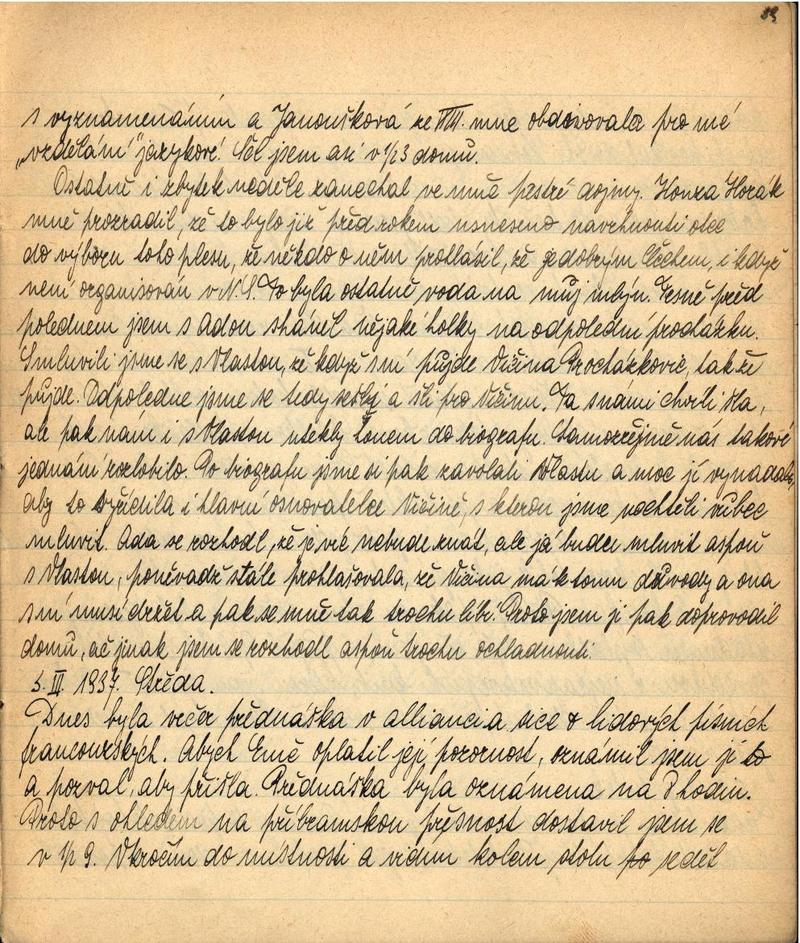 s vyznamenáním a Janoušková ze VIII. mne obdivovala pro mé
„vzdělání" jazykové. Šel jsem asi v 1/23 domů.
Ostatně i zbytek neděle zanechal ve mně pestré dojmy. Honza Horák
mně prozradil, že to bylo již před rokem usneseno navrhnouti otce
do výboru toho plesu, že někdo o něm prohlásil, že je dobrým Čechem, i když
není organisován v N.S. To byla ostatně voda na můj mlýn. Těsně před
polednem jsem s Adou sháněl nějaké holky na odpolední procházku.
Smluvili jsme se s Vlastou, že když s ní půjde Věřina Procházkovic, tak že
půjde. Odpoledne jsme se tedy sešli a šli pro Věřinu. Ta s námi chvíli šla,
ale pak nám i s Vlastou utekly honem do biografu. Samozřejmě nás takové
jednání rozlobilo. Po biografu jsme si pak zavolali Vlastu a moc jí vynadali,
aby to vyřídila i hlavní osnovatelce Věřině, s kterou jsme nechtěli vůbec
mluvit. Ada se rozhodl, že je více nebude znát, ale já budu mluvit aspoň
s Vlastou, poněvadž stále prohlašovala, že Věřina má k tomu důvody a ona
s ní musí držet a pak se mně tak trochu líbí. Proto jsem ji pak doprovodil
domů, ač jinak jsem se rozhodl aspoň trochu ochladnouti.
3. III. 1937. Středa.
Dnes byla večer přednáška v allianci a sice o lidových písních
francouzských. Abych Emě oplatil její pozornost, oznámil jsem jí to
a pozval, aby přišla. Přednáška byla oznámena na 8 hodin.
Proto s ohledem na příbramskou přesnost dostavil jsem se
v 1/2 9. Vkročím do místnosti a vidím kolem stolu po seděl